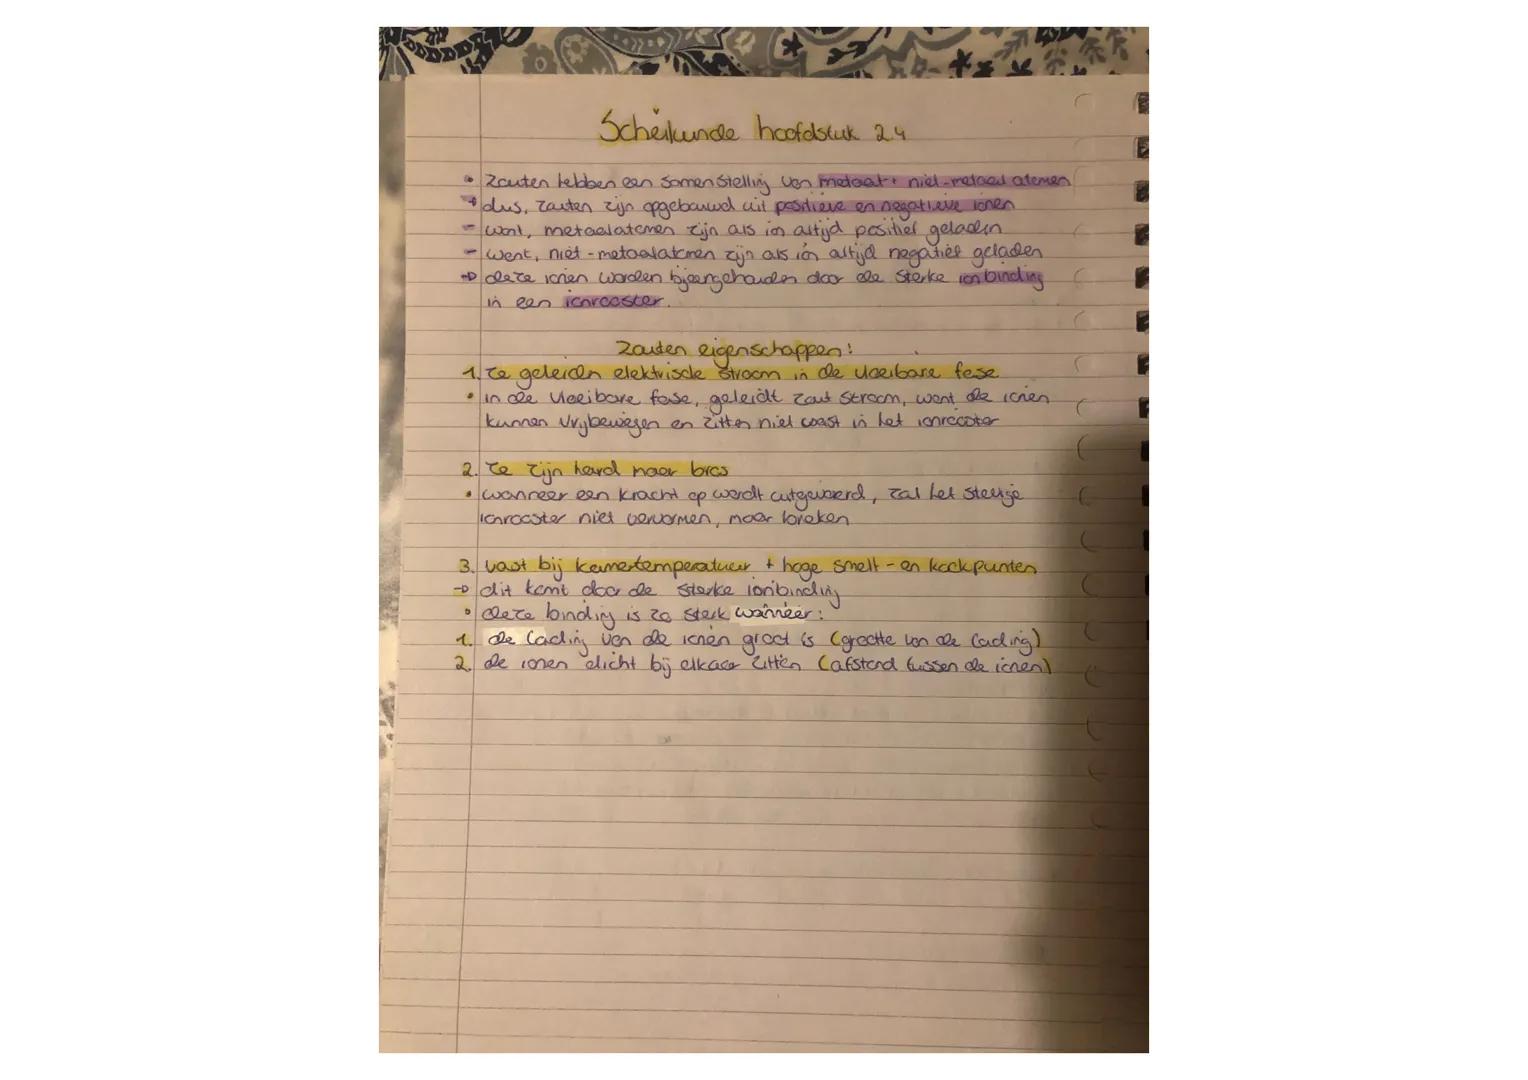 Scheikunde hoofdstuk 2.4
• Zouten hebben een samenstelling van metaal + niet-metaal atomen
→ dus, zouten zijn opgebouwd uit positieve en negatieve ionen
- want, metaalatomen zijn als ion altijd positief geladen
- want, niet-metaalatomen zijn als ion altijd negatief geladen
→ deze ionen worden bijeengehouden door de sterke ionbinding
in een ionrooster.
Zouten eigenschappen:
1. Ze geleiden elektrische stroom in de vloeibare fase
• in de vloeibare fase, geleidt zout stroom, want de ionen
kunnen vrijbewegen en zitten niet vast in het ionrooster
2. Ze zijn hard maar bros
• wanneer een kracht op wordt uitgevoerd, zal het stevige
ionrooster niet vervormen, maar breken
3. vast bij kamertemperatuur + hoge smelt- en kookpunten
→ dit komt door de sterke ionbinding
• deze binding is zo sterk wanneer:
1. de lading van de ionen groot is (grootte van de lading)
2. de ionen dicht bij elkaar zitten (afstand tussen de ionen)